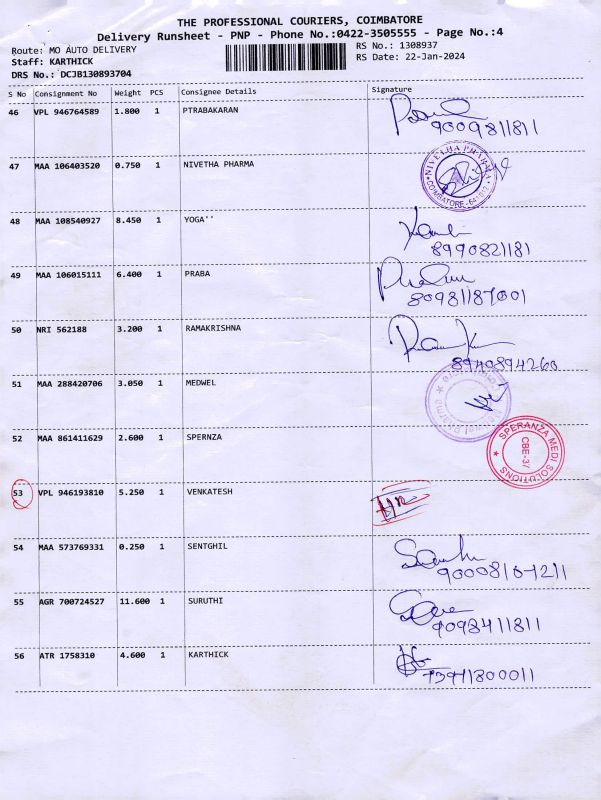 THE PROFESSIONAL COURIERS, COIMBATORE
Delivery Runsheet - PNP - Phone No.:0422-3505555 - Page No.:4
Route: MO AUTO DELIVERY RS No.: 1308937
Staff: KARTHICK RS Date: 22-Jan-2024
DRS No.: DCJB130893704
S No Consignment No Weight PCS Consignee Details Signature
46 VPL 946764589 1.800 1 PTRABAKARAN
9009811811
47 MAA 106403520 0.750 1 NIVETHA PHARMA
NIVETHA PHARMA
COIMBATORE
48 MAA 108540927 8.450 1 YOGA''
8990821181
49 MAA 106015111 6.400 1 PRABA
80981187001
50 NRI 562188 3.200 1 RAMAKRISHNA
8940894260
51 MAA 288420706 3.050 1 MEDWEL
52 MAA 861411629 2.600 1 SPERNZA
SPERANZA MEDI SOLUTIONS
CBE-37
53 VPL 946193810 5.250 1 VENKATESH
54 MAA 573769331 0.250 1 SENTGHIL
55 AGR 700724527 11.600 1 SURUTHI
9098411811
56 ATR 1758310 4.600 1 KARTHICK